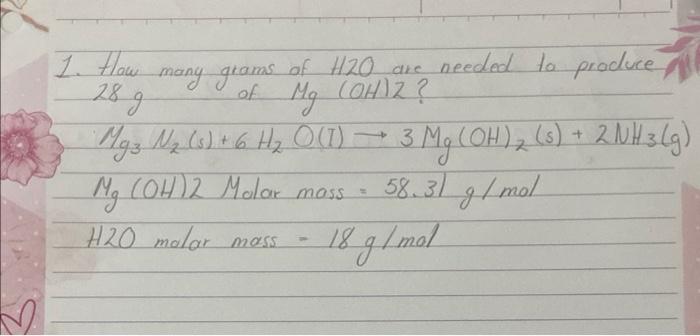 1. How many grams of H2O are needed to produce
28 g of Mg (OH)2?
Mg₃ N₂ (s) + 6 H₂ O(l) → 3 Mg(OH)₂ (s) + 2NH3(g)
Mg (OH)2 Molar mass = 58.31 g/mol
H2O molar mass = 18 g/mol